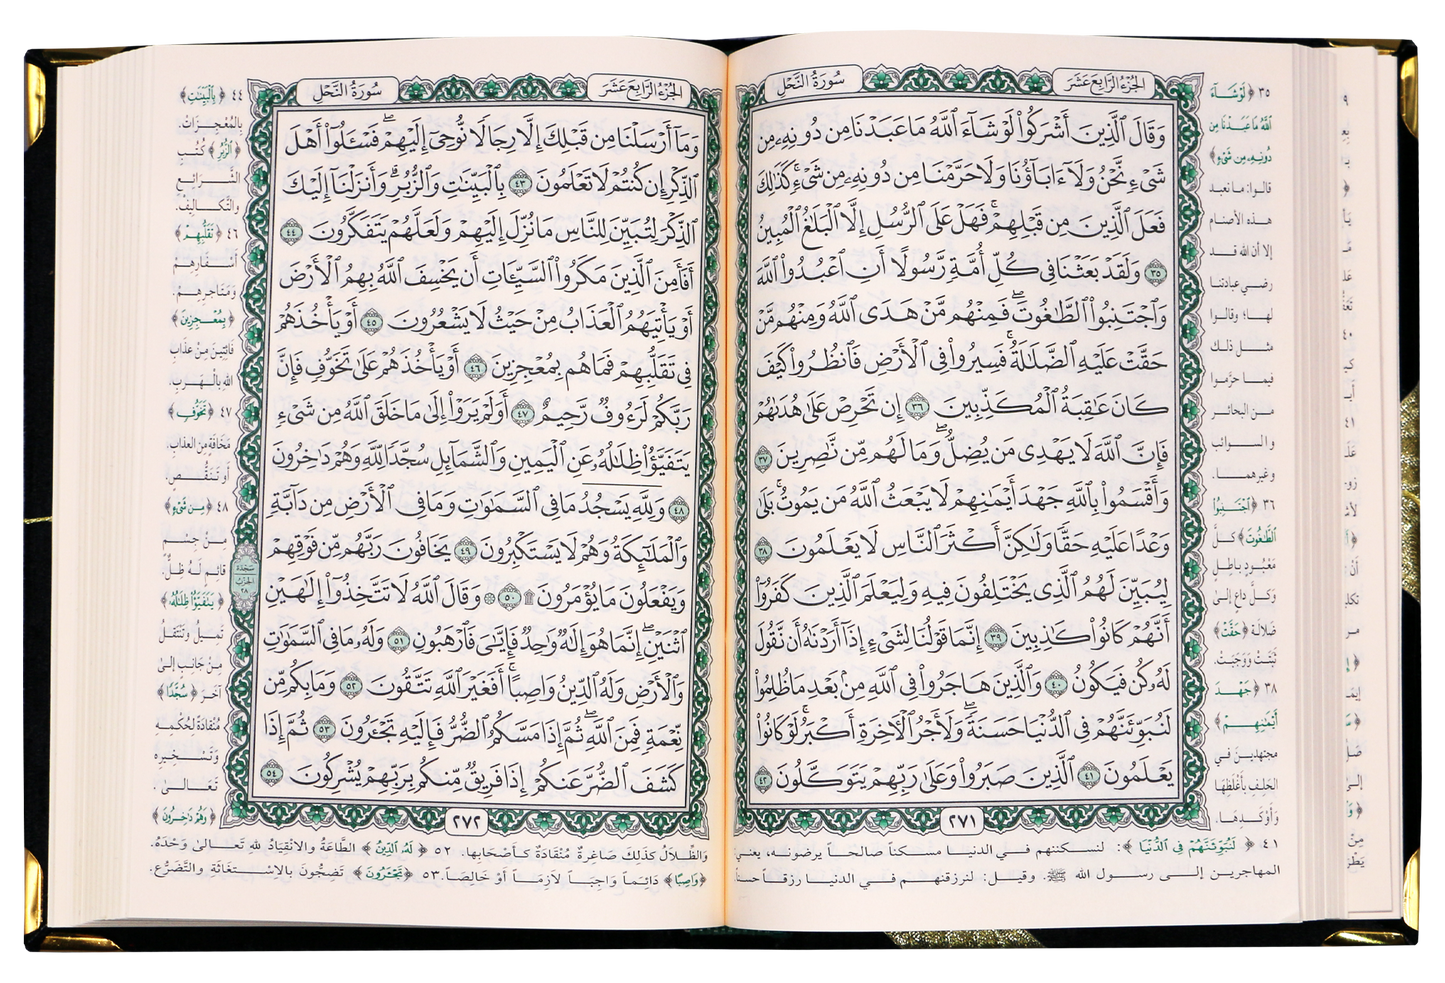 الجُزْءُ الرَّابِعَ عَشَرَ
سُورَةُ النَّحْلِ
وَقَالَ ٱلَّذِينَ أَشْرَكُوا۟ لَوْ شَآءَ ٱللَّهُ مَا عَبَدْنَا مِن دُونِهِۦ مِن
شَىْءٍ نَّحْنُ وَلَآ ءَابَآؤُنَا وَلَا حَرَّمْنَا مِن دُونِهِۦ مِن شَىْءٍ ۚ كَذَٰلِكَ
فَعَلَ ٱلَّذِينَ مِن قَبْلِهِمْ ۚ فَهَلْ عَلَى ٱلرُّسُلِ إِلَّا ٱلْبَلَٰغُ ٱلْمُبِينُ
٣٥ وَلَقَدْ بَعَثْنَا فِى كُلِّ أُمَّةٍ رَّسُولًا أَنِ ٱعْبُدُوا۟ ٱللَّهَ
وَٱجْتَنِبُوا۟ ٱلطَّٰغُوتَ ۖ فَمِنْهُم مَّنْ هَدَى ٱللَّهُ وَمِنْهُم مَّنْ
حَقَّتْ عَلَيْهِ ٱلضَّلَٰلَةُ ۚ فَسِيرُوا۟ فِى ٱلْأَرْضِ فَٱنظُرُوا۟ كَيْفَ
كَانَ عَٰقِبَةُ ٱلْمُكَذِّبِينَ ٣٦ إِن تَحْرِصْ عَلَىٰ هُدَىٰهُمْ
فَإِنَّ ٱللَّهَ لَا يَهْدِى مَن يُضِلُّ ۖ وَمَا لَهُم مِّن نَّٰصِرِينَ ٣٧
وَأَقْسَمُوا۟ بِٱللَّهِ جَهْدَ أَيْمَٰنِهِمْ لَا يَبْعَثُ ٱللَّهُ مَن يَمُوتُ ۚ بَلَىٰ
وَعْدًا عَلَيْهِ حَقًّا وَلَٰكِنَّ أَكْثَرَ ٱلنَّاسِ لَا يَعْلَمُونَ ٣٨
لِيُبَيِّنَ لَهُمُ ٱلَّذِى يَخْتَلِفُونَ فِيهِ وَلِيَعْلَمَ ٱلَّذِينَ كَفَرُوٓا۟
أَنَّهُمْ كَانُوا۟ كَٰذِبِينَ ٣٩ إِنَّمَا قَوْلُنَا لِشَىْءٍ إِذَآ أَرَدْنَٰهُ أَن نَّقُولَ
لَهُۥ كُن فَيَكُونُ ٤٠ وَٱلَّذِينَ هَاجَرُوا۟ فِى ٱللَّهِ مِنۢ بَعْدِ مَا ظُلِمُوا۟
لَنُبَوِّئَنَّهُمْ فِى ٱلدُّنْيَا حَسَنَةً ۖ وَلَأَجْرُ ٱلْءَاخِرَةِ أَكْبَرُ ۚ لَوْ كَانُوا۟
يَعْلَمُونَ ٤١ ٱلَّذِينَ صَبَرُوا۟ وَعَلَىٰ رَبِّهِمْ يَتَوَكَّلُونَ ٤٢
٢٧١
٣٥ ﴿لَوْ شَآءَ
ٱللَّهُ مَا عَبَدْنَا مِن
دُونِهِۦ مِن شَىْءٍ﴾
قالوا: ما نعبد
هذه الأصنام
إلا أن الله قد
رضي عبادتنا
لها؛ وقالوا
مثل ذلك
فيما حرَّموا
من البحائر
والسوائب
وغيرهما.
٣٦ ﴿ٱجْتَنِبُوا۟
ٱلطَّٰغُوتَ﴾ كلَّ
مَعْبُودٍ بباطلٍ
وَكلَّ داعٍ إلىٰ
ضلالة ﴿حَقَّتْ﴾
ثَبَتَتْ وَوَجَبَتْ.
٣٨ ﴿جَهْدَ
أَيْمَٰنِهِمْ﴾
مجتهدين في
الحَلِفِ بِأَغْلَظِهَا
وَأَوْكَدِهَا.
٤١ ﴿لَنُبَوِّئَنَّهُمْ فِى ٱلدُّنْيَا﴾: لنسكننهم في الدنيا مسكناً صالحاً يرضونه، يعني:
المهاجرين إلى رسول الله ﷺ. وقيل: لنرزقنهم في الدنيا رزقاً حسناً
الجُزْءُ الرَّابِعَ عَشَرَ
سُورَةُ النَّحْلِ
وَمَآ أَرْسَلْنَا مِن قَبْلِكَ إِلَّا رِجَالًا نُّوحِىٓ إِلَيْهِمْ ۖ فَسْـَٔلُوٓا۟ أَهْلَ
ٱلذِّكْرِ إِن كُنتُمْ لَا تَعْلَمُونَ ٤٣ بِٱلْبَيِّنَٰتِ وَٱلزُّبُرِ ۗ وَأَنزَلْنَآ إِلَيْكَ
ٱلذِّكْرَ لِتُبَيِّنَ لِلنَّاسِ مَا نُزِّلَ إِلَيْهِمْ وَلَعَلَّهُمْ يَتَفَكَّرُونَ ٤٤
أَفَأَمِنَ ٱلَّذِينَ مَكَرُوا۟ ٱلسَّيِّـَٔاتِ أَن يَخْسِفَ ٱللَّهُ بِهِمُ ٱلْأَرْضَ
أَوْ يَأْتِيَهُمُ ٱلْعَذَابُ مِنْ حَيْثُ لَا يَشْعُرُونَ ٤٥ أَوْ يَأْخُذَهُمْ
فِى تَقَلُّبِهِمْ فَمَا هُم بِمُعْجِزِينَ ٤٦ أَوْ يَأْخُذَهُمْ عَلَىٰ تَخَوُّفٍ فَإِنَّ
رَبَّكُمْ لَرَءُوفٌ رَّحِيمٌ ٤٧ أَوَلَمْ يَرَوْا۟ إِلَىٰ مَا خَلَقَ ٱللَّهُ مِن شَىْءٍ
يَتَفَيَّؤُا۟ ظِلَٰلُهُۥ عَنِ ٱلْيَمِينِ وَٱلشَّمَآئِلِ سُجَّدًا لِّلَّهِ وَهُمْ دَٰخِرُونَ
٤٨ وَلِلَّهِ يَسْجُدُ مَا فِى ٱلسَّمَٰوَٰتِ وَمَا فِى ٱلْأَرْضِ مِن دَآبَّةٍ
وَٱلْمَلَٰٓئِكَةُ وَهُمْ لَا يَسْتَكْبِرُونَ ٤٩ يَخَافُونَ رَبَّهُم مِّن فَوْقِهِمْ
وَيَفْعَلُونَ مَا يُؤْمَرُونَ ۩ ٥٠ ۞ وَقَالَ ٱللَّهُ لَا تَتَّخِذُوٓا۟ إِلَٰهَيْنِ
ٱثْنَيْنِ ۖ إِنَّمَا هُوَ إِلَٰهٌ وَٰحِدٌ ۖ فَإِيَّٰىَ فَٱرْهَبُونِ ٥١ وَلَهُۥ مَا فِى ٱلسَّمَٰوَٰتِ
وَٱلْأَرْضِ وَلَهُ ٱلدِّينُ وَاصِبًا ۚ أَفَغَيْرَ ٱللَّهِ تَتَّقُونَ ٥٢ وَمَا بِكُم مِّن
نِّعْمَةٍ فَمِنَ ٱللَّهِ ۖ ثُمَّ إِذَا مَسَّكُمُ ٱلضُّرُّ فَإِلَيْهِ تَجْـَٔرُونَ ٥٣ ثُمَّ إِذَا
كَشَفَ ٱلضُّرَّ عَنكُمْ إِذَا فَرِيقٌ مِّنكُم بِرَبِّهِمْ يُشْرِكُونَ ٥٤
٢٧٢
٤٤ ﴿بِٱلْبَيِّنَٰتِ﴾
بِالمُعْجِزَاتِ.
﴿ٱلزُّبُرِ﴾ كُتُبِ
الشَّرَائِعِ
وَالتَّكَالِيفِ.
٤٦ ﴿تَقَلُّبِهِمْ﴾
أَسْفَارِهِمْ
وَمَتَاجِرِهِمْ.
﴿بِمُعْجِزِينَ﴾
فَائِتِينَ مِنْ عذَابِ
اللهِ بِالْهَرَبِ.
٤٧ ﴿تَخَوُّفٍ﴾
مَخَافَةٍ مِنَ العذابِ،
أَوْ تَنَقُّصٍ.
٤٨ ﴿مِن شَىْءٍ﴾
مِنْ جِسْمٍ
قائمٍ لَهُ ظِلٌّ.
﴿يَتَفَيَّؤُا۟ ظِلَٰلُهُۥ﴾
تَمِيلُ وَتَنْتَقِلُ
مِنْ جَانِبٍ إِلىٰ
آخَرَ ﴿سُجَّدًا﴾
مُنْقَادَةً لِحُكْمِهِ
وَتَسْخِيرِهِ
تَعَالىٰ
﴿وَهُمْ دَٰخِرُونَ﴾
سَجْدَة
٢٨
وَالظِّلَالُ كَذلِكَ صَاغِرةٌ مُنْقَادَةٌ كَأَصْحَابِهَا. ٥٢ ﴿لَهُ ٱلدِّينُ﴾ الطَّاعَةُ وَالانْقِيَادُ للهِ تَعَالىٰ وَحْدَهُ.
﴿وَاصِبًا﴾ دَائِماً وَاجِباً لَازِماً أَوْ خَالِصاً. ٥٣ ﴿تَجْـَٔرُونَ﴾ تَضِجُّونَ بِالاسْتِغَاثَةِ وَالتَّضَرُّعِ.